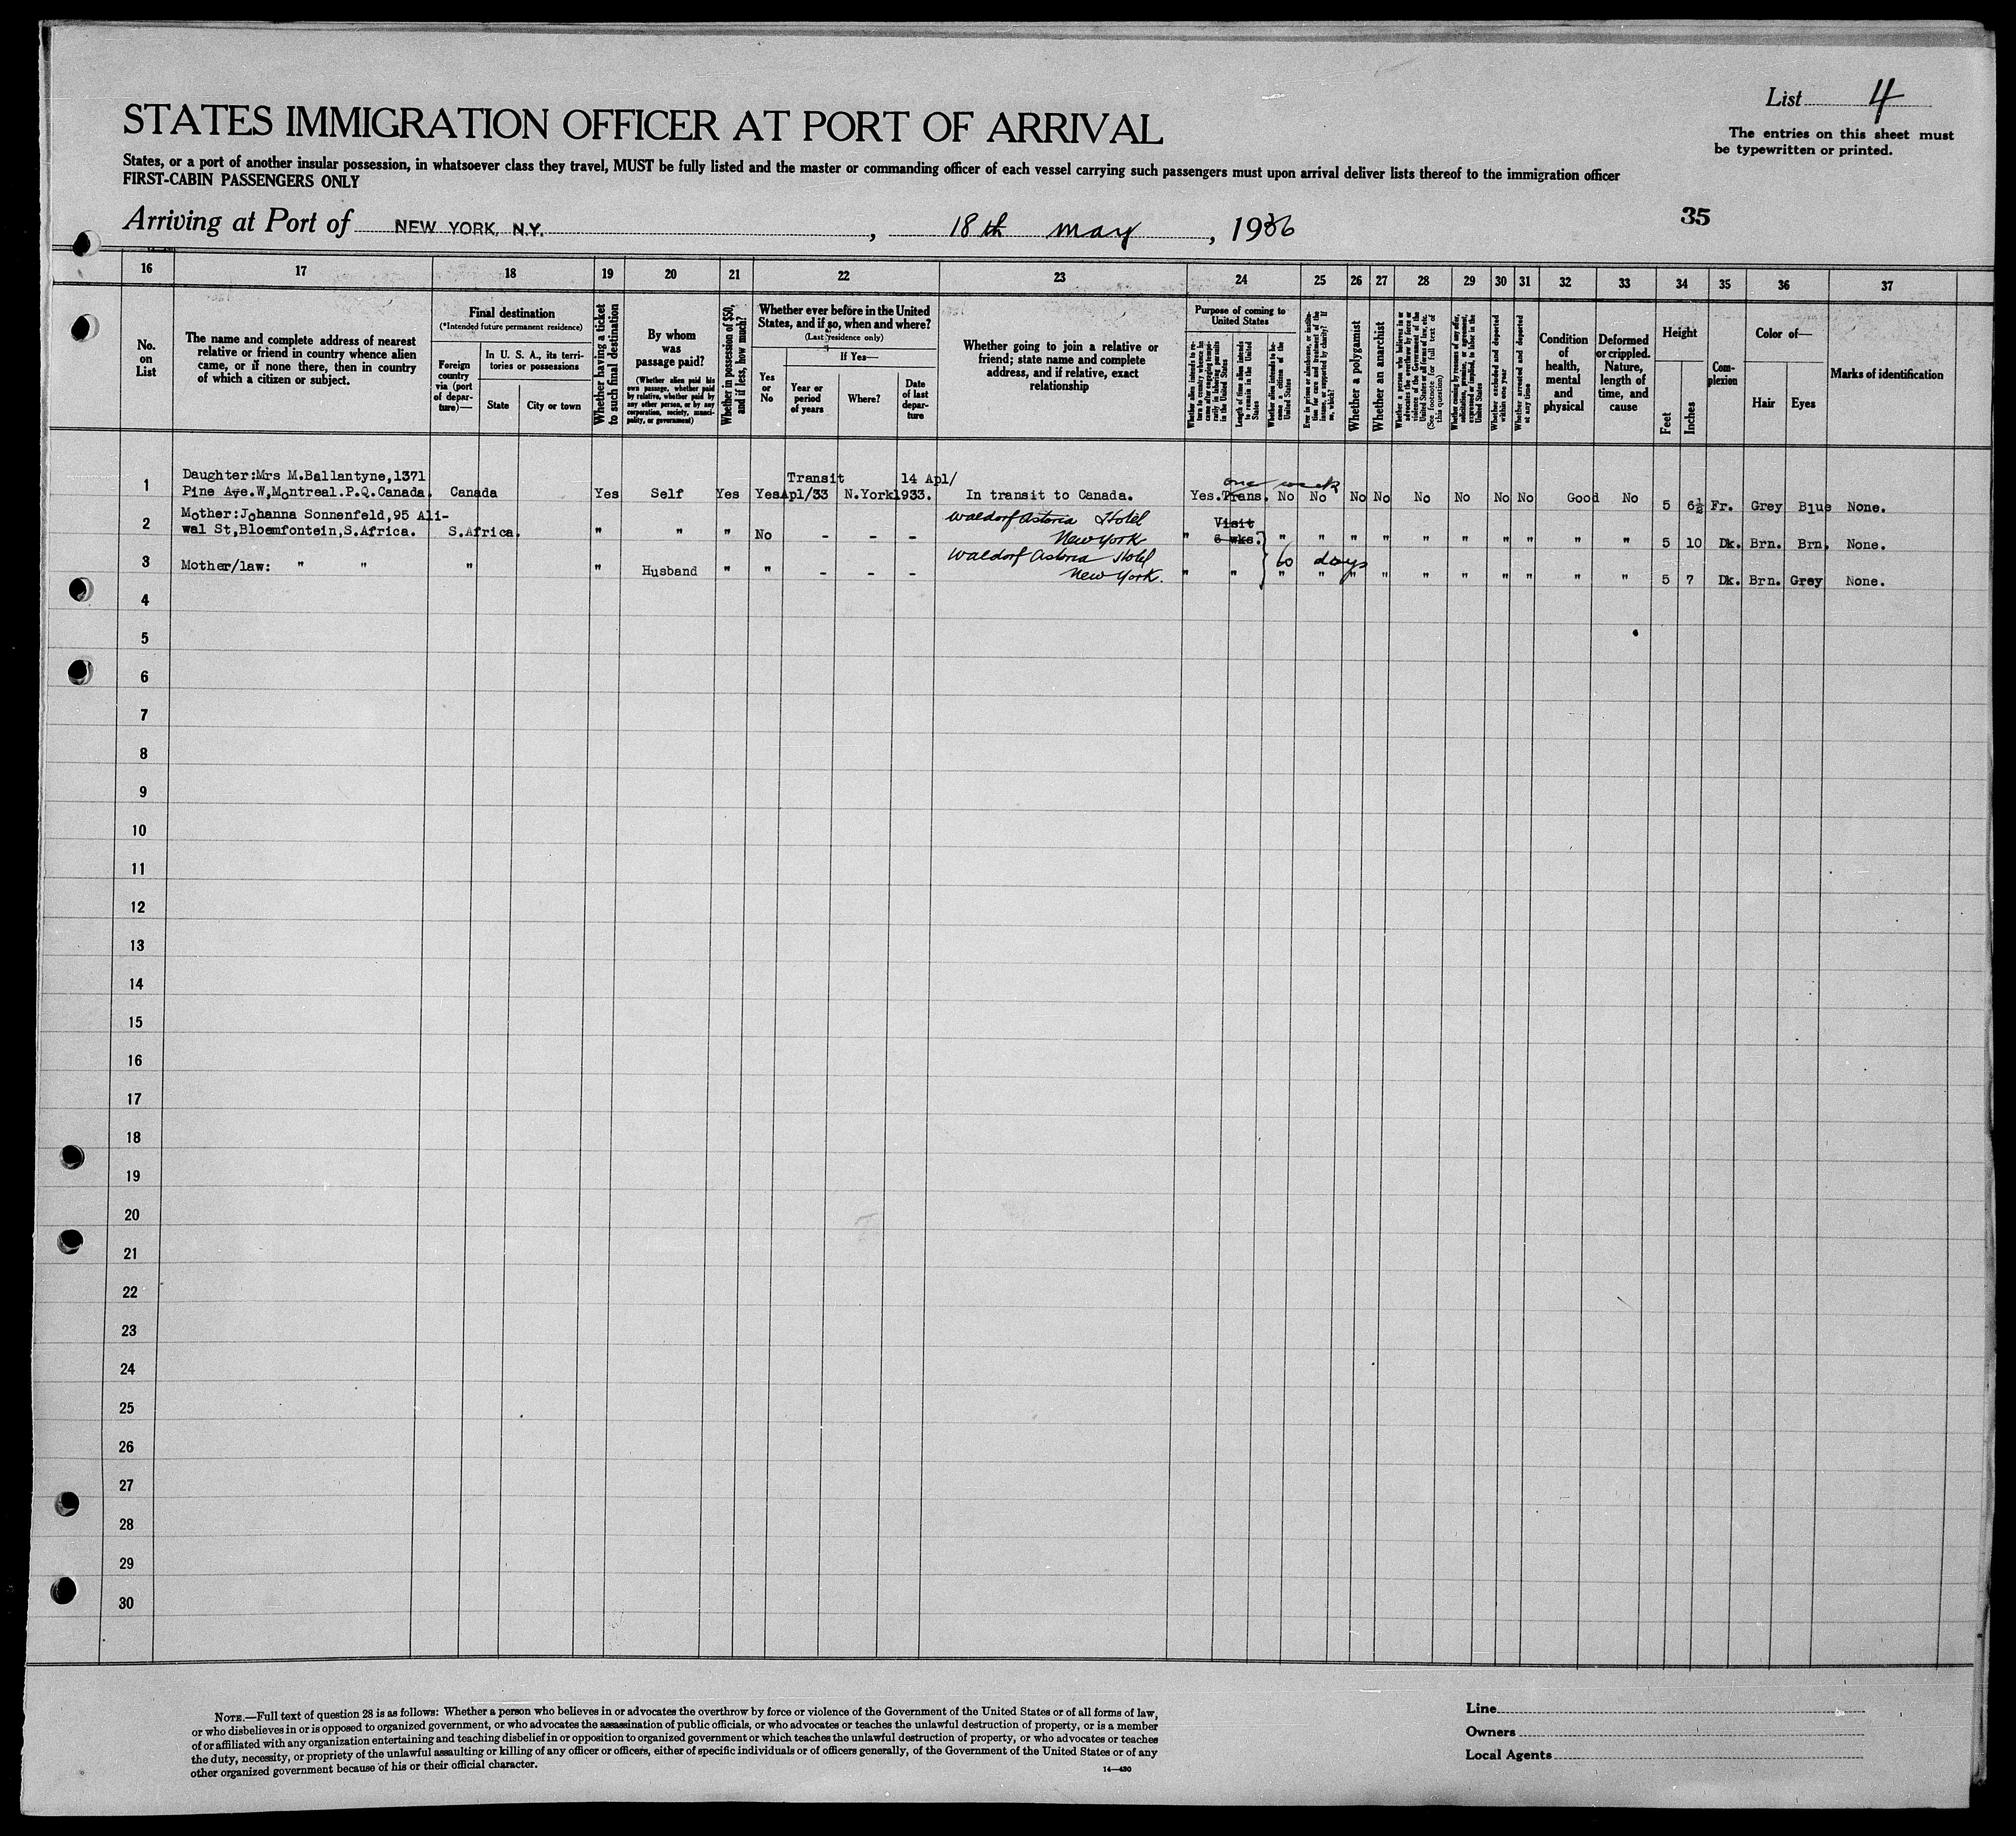 List 4
The entries on this sheet must
be typewritten or printed.
STATES IMMIGRATION OFFICER AT PORT OF ARRIVAL
States, or a port of another insular possession, in whatsoever class they travel, MUST be fully listed and the master or commanding officer of each vessel carrying such passengers must upon arrival deliver lists thereof to the immigration officer
FIRST-CABIN PASSENGERS ONLY
35
Arriving at Port of NEW YORK, N.Y. , 18th may , 1936
16 17 18 19 20 21 22 23 24 25 26 27 28 29 30 31 32 33 34 35 36 37
No.
on
List
The name and complete address of nearest
relative or friend in country whence alien
came, or if none there, then in country
of which a citizen or subject.
Final destination
(*Intended future permanent residence)
Foreign
country
via (port
of depar-
ture)—
In U. S. A., its terri-
tories or possessions
State
City or town
Whether having a ticket
to such final destination
By whom
was
passage paid?
(Whether alien paid his
own passage, whether paid
by relative, whether paid by
any other person, or by any
corporation, society, munici-
pality, or government)
Whether in possession of $50,
and if less, how much?
Whether ever before in the United
States, and if so, when and where?
(Last residence only)
Yes
or
No
If Yes—
Year or
period
of years
Where?
Date
of last
depar-
ture
Whether going to join a relative or
friend; state name and complete
address, and if relative, exact
relationship
Purpose of coming to
United States
Whether alien intends to re-
turn to country whence he
came after engaging tempo-
rarily in laboring pursuits
in the United States
Length of time alien intends
to remain in the United
States
Whether alien intends to be-
come a citizen of the
United States
Ever in prison or almshouse, or institu-
tion for care and treatment of the
insane, or supported by charity? If
so, which?
Whether a polygamist
Whether an anarchist
Whether a person who believes in or
advocates the overthrow by force or
violence of the Government of the
United States or all forms of law, etc.
(See footnote for full text of
this question)
Whether coming by reason of any offer,
solicitation, promise, or agreement,
expressed or implied, to labor in the
United States
Whether excluded and deported
within one year
Whether arrested and deported
at any time
Condition
of
health,
mental
and
physical
Deformed
or crippled.
Nature,
length of
time, and
cause
Height
Feet
Inches
Com-
plexion
Color of—
Hair
Eyes
Marks of identification
Daughter:Mrs M.Ballantyne,1371 Transit 14 Apl/ one week
1 Pine Ave.W,Montreal.P.Q.Canada. Canada Yes Self Yes Yes Apl/33 N.York 1933. In transit to Canada. Yes. Trans. No No No No No No No No Good No 5 6½ Fr. Grey Blue None.
Mother:Johanna Sonnenfeld,95 Ali- Waldorf Astoria Hotel Visit
2 wal St,Bloemfontein,S.Africa. S.Africa. " " " No - - - New York " 6 wks. " " " " " " " " " " 5 10 Dk. Brn. Brn. None.
Waldorf Astoria Hotel 60 days
3 Mother/law: " " " " Husband " " - - - New York. " " " " " " " " " " " " 5 7 Dk. Brn. Grey None.
4
5
6
7
8
9
10
11
12
13
14
15
16
17
18
19
20
21
22
23
24
25
26
27
28
29
30
NOTE.—Full text of question 28 is as follows: Whether a person who believes in or advocates the overthrow by force or violence of the Government of the United States or of all forms of law,
or who disbelieves in or is opposed to organized government, or who advocates the assassination of public officials, or who advocates or teaches the unlawful destruction of property, or is a member
of or affiliated with any organization entertaining and teaching disbelief in or opposition to organized government or which teaches the unlawful destruction of property, or who advocates or teaches
the duty, necessity, or propriety of the unlawful assaulting or killing of any officer or officers, either of specific individuals or of officers generally, of the Government of the United States or of any
other organized government because of his or their official character.
14—430
Line
Owners
Local Agents